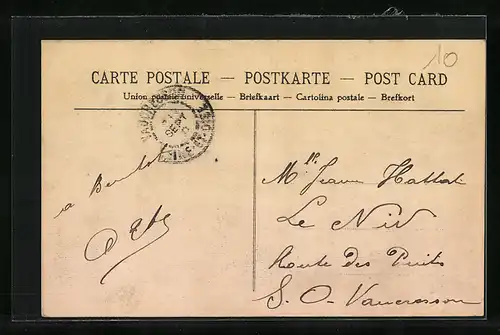 10
CARTE POSTALE — POSTKARTE — POST CARD
Union postale universelle — Briefkaart — Cartolina postale — Brefkort
a Bientot
Mlle Jeanne
Le Nid
Route des Puits
S. O- Vaucresson